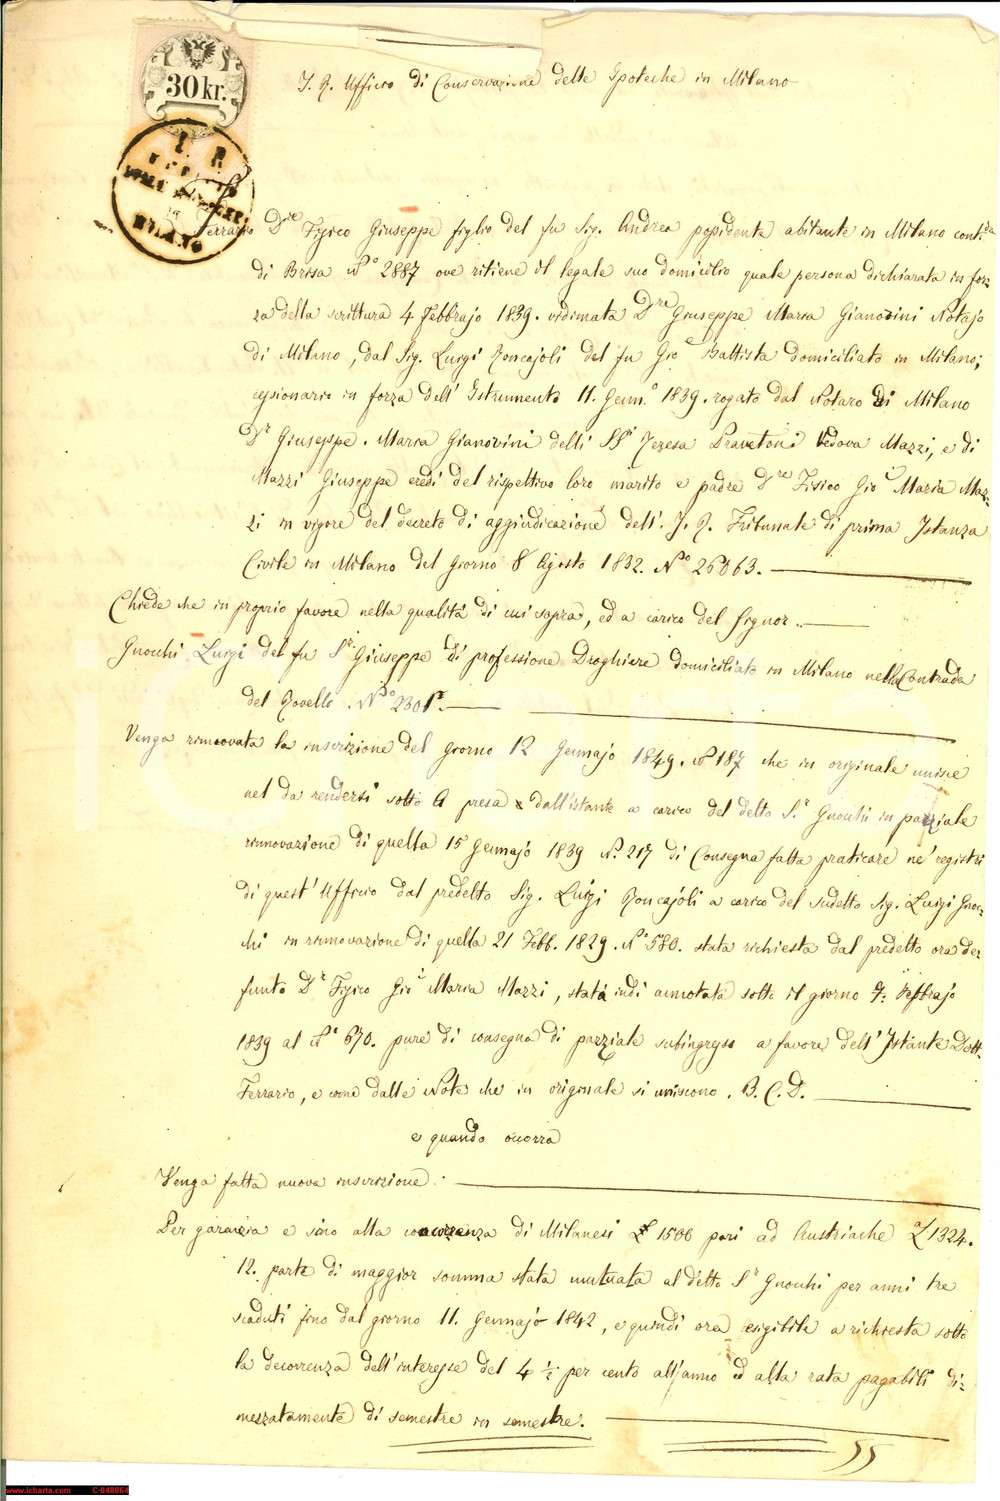 I. R. Ufficio di Conservazione delle Ipoteche in Milano
30 kr.
I R
MILANO
Ferrario Dre Fisico Giuseppe figlio del fu Sig. Andrea possidente abitante in Milano contda
di Brisa No 2887 ove ritiene il legale suo domicilio quale persona dichiarata in for-
za della scrittura 4 Febbrajo 1839. vidimata Dre Giuseppe Maria Gianorini Notajo
di Milano, dal Sig. Luigi Roncajoli del fu Gio Battista domiciliato in Milano;
cessionario in forza dell'Istrumento 11. Genn.o 1839. rogato dal Notaro di Milano
Dr Giuseppe. Maria Gianorini delli SSri Teresa Pravettoni Vedova Mazzi, e di
Mazzi Giuseppe eredi del rispettivo loro marito e padre Dre Fisico Gio Maria Maz-
zi in vigore del decreto di aggiudicazione dell'I. R. Tribunale di prima Istanza
Civile in Milano del giorno 8 Agosto 1832. No 26063.
Chiede che in proprio favore nella qualità di cui sopra, ed a carico del Signor
Gnocchi Luigi del fu Sr Giuseppe di professione Droghiere domiciliato in Milano nella Contrada
del Rovello. No 2301.
Venga rinnovata la inscrizione del giorno 12 Gennajo 1849. No 187 che in originale unisce
nel da rendersi sotto A presa dall'istante a carico del detto Sr Gnocchi in parziale
rinnovazione di quella 15 Gennajo 1839 No. 217 di Consegna fatta praticare ne' registri
di quest'Ufficio dal predetto Sig. Luigi Roncajoli a carico del sudetto Sig. Luigi Gnoc-
chi in rinnovazione di quella 21 Febb. 1829. No 580. stata richiesta dal predetto ora de-
funto Dr Fisico Gio Maria Mazzi, stata indi annotata sotto il giorno 7. Febbrajo
1839 al No 670. pure di consegna di parziale subingresso a favore dell'Istante Dott.
Ferrario, e come dalle Note che in originale si uniscono. B. C. D.
e quando occorra
Venga fatta nuova inscrizione.
Per garanzia e sino alla concorrenza di Milanesi £ 1500 pari ad Austriache £ 1324.
12. parte di maggior somma stata mutuata al detto Sr Gnocchi per anni tre
scaduti fino dal giorno 11. Gennajo 1842, e quindi ora esigibile a richiesta sotto
la decorrenza dell'interesse del 4 ½ per cento all'anno ed alla rata pagabili di-
mezzatamente di semestre in semestre.
www.icharta.com C-040064